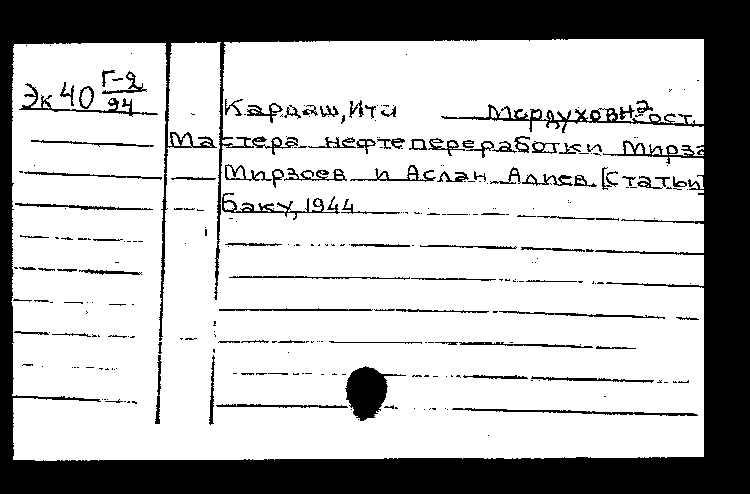 Эк 40 Г-2/94
Кардаш, Ити Мордухович, сост.
Мастера нефтепереработки Мирза
Мирзоев и Аслан Алиев. [Статьи]
Баку, 1944